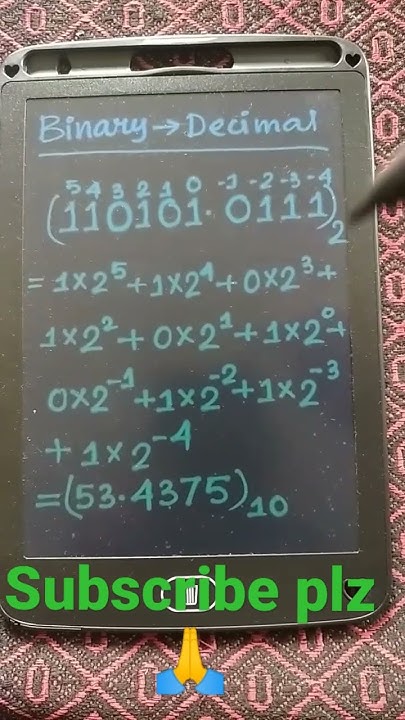 Binary→Decimal
5 4 3 2 1 0 -1 -2 -3 -4
(110101.0111)₂
= 1×2⁵+1×2⁴+0×2³+
1×2²+0×2¹+1×2⁰+
0×2⁻¹+1×2⁻²+1×2⁻³
+1×2⁻⁴
=(53.4375)₁₀
Subscribe plz
🙏